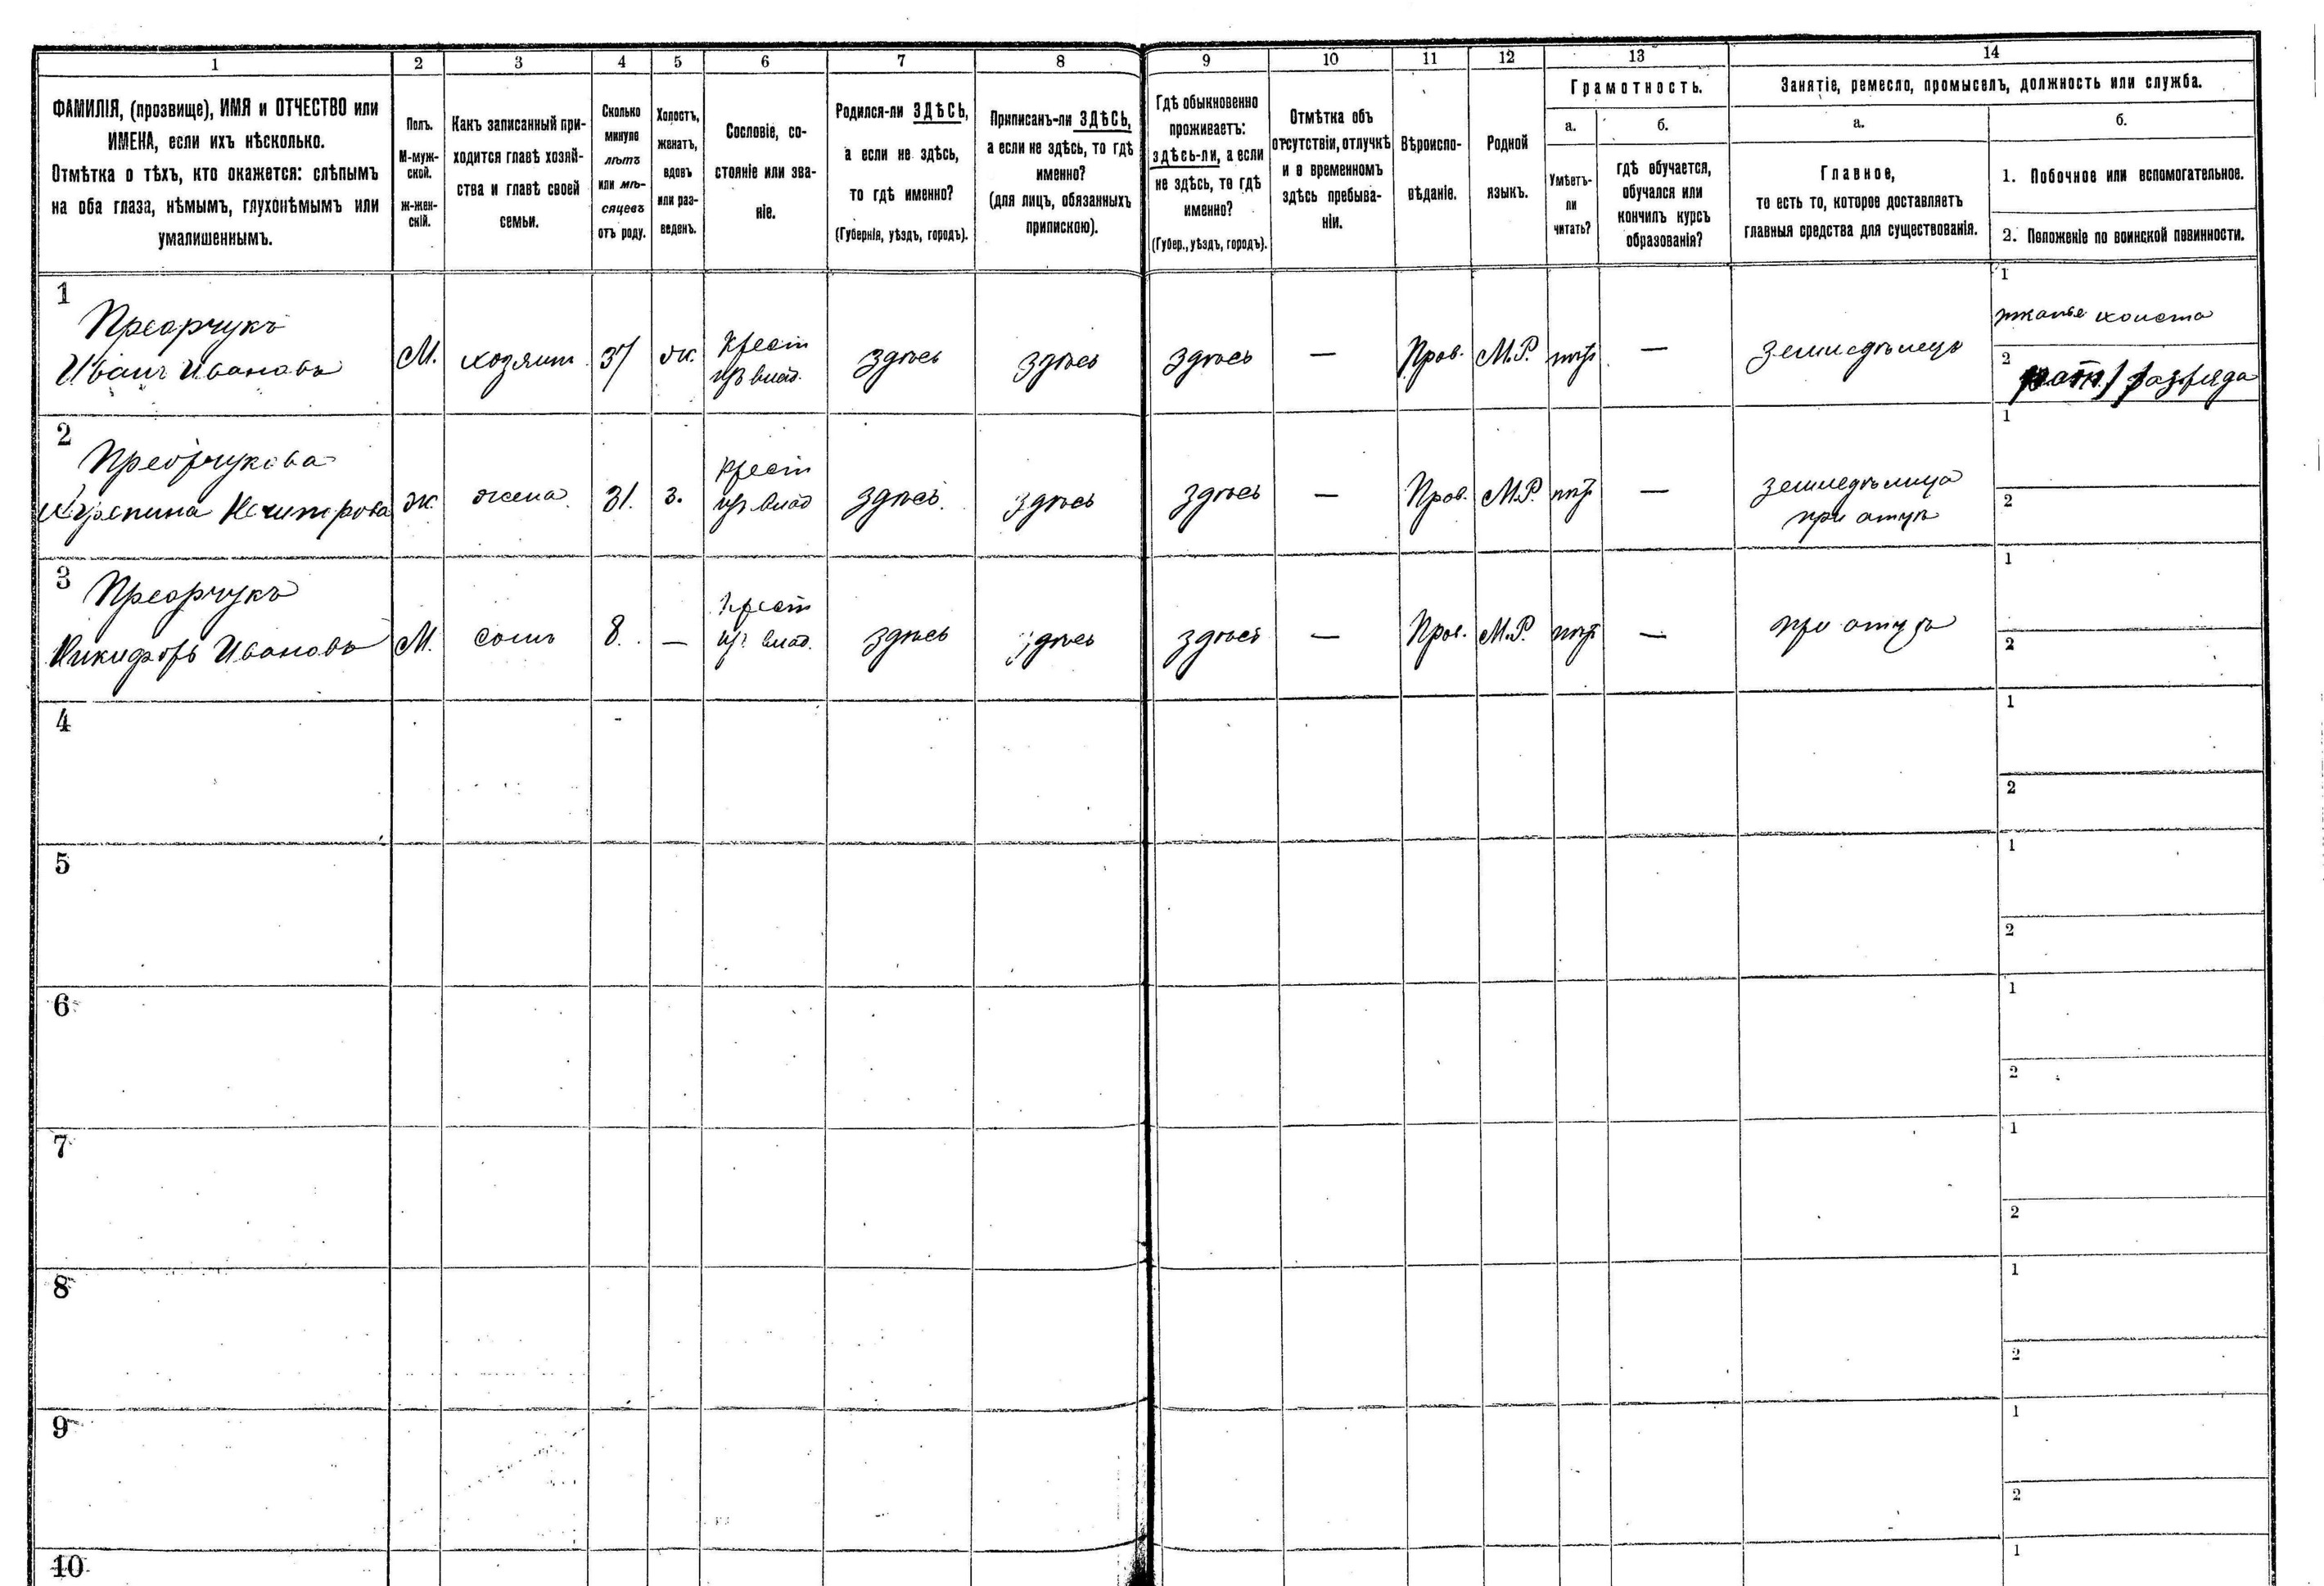 1 2 3 4 5 6 7 8 9 10 11 12 13 14
ФАМИЛІЯ, (прозвище), ИМЯ и ОТЧЕСТВО или
ИМЕНА, если ихъ нѣсколько.
Отмѣтка о тѣхъ, кто окажется: слѣпымъ
на оба глаза, нѣмымъ, глухонѣмымъ или
умалишеннымъ.
Полъ.
М-муж-
ской.
ж-жен-
скій.
Какъ записанный при-
ходится главѣ хозяй-
ства и главѣ своей
семьи.
Сколько
минуло
лѣтъ
или мѣ-
сяцевъ
отъ роду.
Холостъ,
женатъ,
вдовъ
или раз-
веденъ.
Сословіе, со-
стояніе или зва-
ніе.
Родился-ли ЗДѢСЬ,
а если не здѣсь,
то гдѣ именно?
(Губернія, уѣздъ, городъ).
Приписанъ-ли ЗДѢСЬ,
а если не здѣсь, то гдѣ
именно?
(для лицъ, обязанныхъ
припискою).
Гдѣ обыкновенно
проживаетъ:
здѣсь-ли, а если
не здѣсь, то гдѣ
именно?
(Губер., уѣздъ, городъ).
Отмѣтка объ
отсутствіи, отлучкѣ
и о временномъ
здѣсь пребыва-
ніи.
Вѣроиспо-
вѣданіе.
Родной
языкъ.
Грамотность.
а.
Умѣетъ-
ли
читать?
б.
гдѣ обучается,
обучался или
кончилъ курсъ
образованія?
Занятіе, ремесло, промыселъ, должность или служба.
а.
Главное,
то есть то, которое доставляетъ
главныя средства для существованія.
б.
1. Побочное или вспомогательное.
2. Положеніе по воинской повинности.
1
Преорчукъ
Иванъ Ивановъ
М.
хозяин
37
ж.
крест
изъ влад.
здѣсь
здѣсь
здѣсь
—
Прав.
М.Р.
нѣт
—
земледѣлецъ
1
2
рат. 1 разряда
2
Преорчукова
ж.
жена
31.
з.
крест
изъ влад
здѣсь.
здѣсь
здѣсь
—
Прав.
М.Р.
нѣт
—
земледѣлица
при отцѣ
1
2
3
Преорчукъ
Никифоръ Ивановъ
М.
сынъ
8.
—
крест
изъ влад.
здѣсь
здѣсь
здѣсь
—
Прав.
М.Р.
нѣт
—
при отцѣ
1
2
4
1
2
5
1
2
6
1
2
7
1
2
8
1
2
9
1
2
10
1